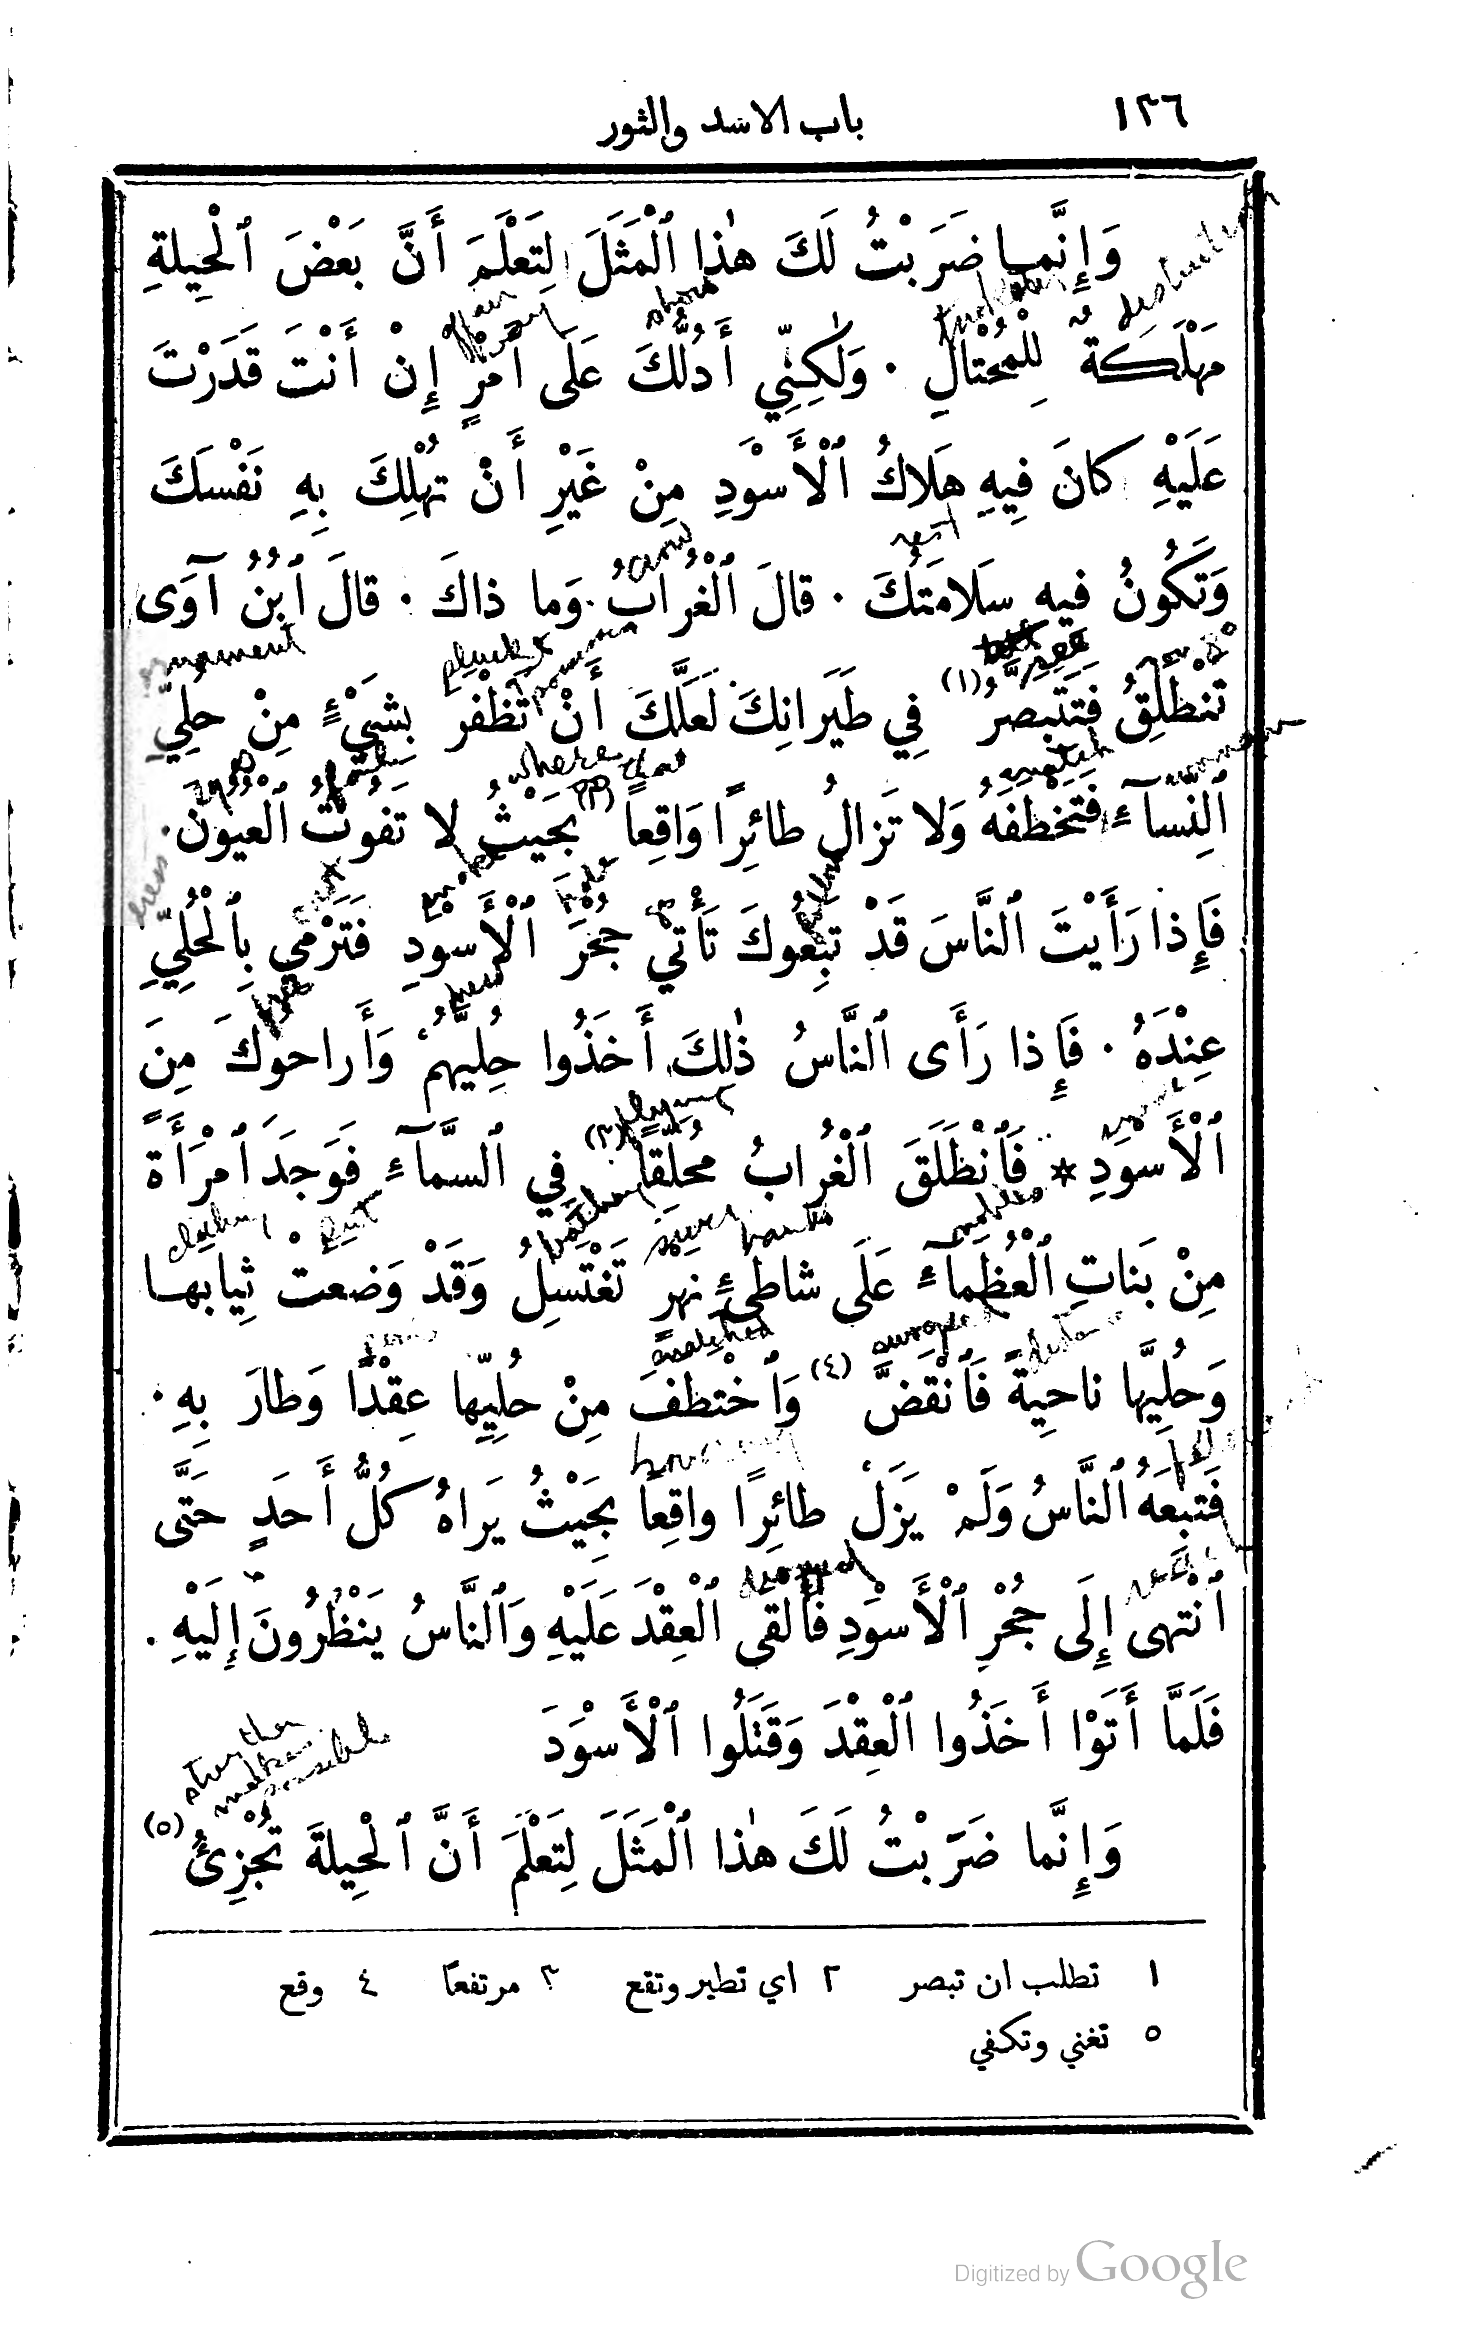 ١٢٦
باب الاسد والثور
وَإِنَّمـا ضَرَبْتُ لَكَ هٰذا ٱلْمَثَلَ لِتَعْلَمَ أَنَّ بَعْضَ ٱلْحِيلةِ
مَهْلَكَةٌ لِلْمُحْتالِ ٠ وَلٰكِنِّي أَدُلُّكَ عَلَى أَمْرٍ إِنْ أَنْتَ قَدَرْتَ
عَلَيْهِ كانَ فِيهِ هَلاكُ ٱلْأَسْوَدِ مِنْ غَيْرِ أَنْ تُهْلِكَ بِهِ نَفْسَكَ
وَتَكُونُ فيهِ سَلامَتُكَ ٠ قالَ ٱلْغُرابُ ٠ وَما ذاكَ ٠ قالَ ٱبْنُ آوَى
تَنْطَلِقُ فَتَتَبَصَّرُ (١) فِي طَيَرانِكَ لَعَلَّكَ أَنْ تَظْفَرَ بِشَيْءٍ مِنْ حُلِيِّ
ٱلنِّسآءِ فَتَخْطَفَهُ وَلا تَزالُ طائِرًا وَاقِعاً (٢) بِحَيْثُ لا تَفُوتُ ٱلْعُيُونَ ٠
فَإِذا رَأَيْتَ ٱلنَّاسَ قَدْ تَبِعُوكَ تَأْتي جُحْرَ ٱلْأَسْوَدِ فَتَرْمي بِٱلْحُلِيِّ
عِنْدَهُ ٠ فَإِذا رَأَى ٱلنَّاسُ ذٰلِكَ أَخَذُوا حُلِيَّهُمْ وَأَراحوكَ مِنَ
ٱلْأَسْوَدِ * فَٱنْطَلَقَ ٱلْغُرابُ مُحَلِّقًا (٣) فِي ٱلسَّمآءِ فَوَجَدَ ٱمْرَأَةً
مِنْ بَناتِ ٱلْعُظَمآءِ عَلَى شاطِئِ نَهرٍ تَغْتَسِلُ وَقَدْ وَضعتْ ثِيابهـا
وَحُلِيَّها ناحِيةً فَٱنْقَضَّ (٤) وَٱخْتطفَ مِنْ حُلِيِّها عِقْدًا وَطارَ بِهِ ٠
فَتَبِعَهُ ٱلنَّاسُ وَلَمْ يَزَلْ طائِرًا واقِعاً بِحَيْثُ يَراهُ كلُّ أَحَدٍ حَتَّى
ٱنْتهى إِلَى جُحْرِ ٱلْأَسْوَدِ فَأَلْقَى ٱلْعِقْدَ عَلَيْهِ وَٱلنَّاسُ يَنْظُرُونَ إِلَيْهِ ٠
فَلَمَّا أَتَوْا أَخَذُوا ٱلْعِقْدَ وَقَتَلُوا ٱلْأَسْوَدَ
وَإِنَّما ضَرَبْتُ لَكَ هٰذا ٱلْمَثَلَ لِتَعْلَمَ أَنَّ ٱلْحِيلةَ تُجْزِئُ (٥)
١ تطلب ان تبصر ٢ اي تطير وتقع ٣ مرتفعًا ٤ وقع
٥ تغني وتكفي
Digitized by Google